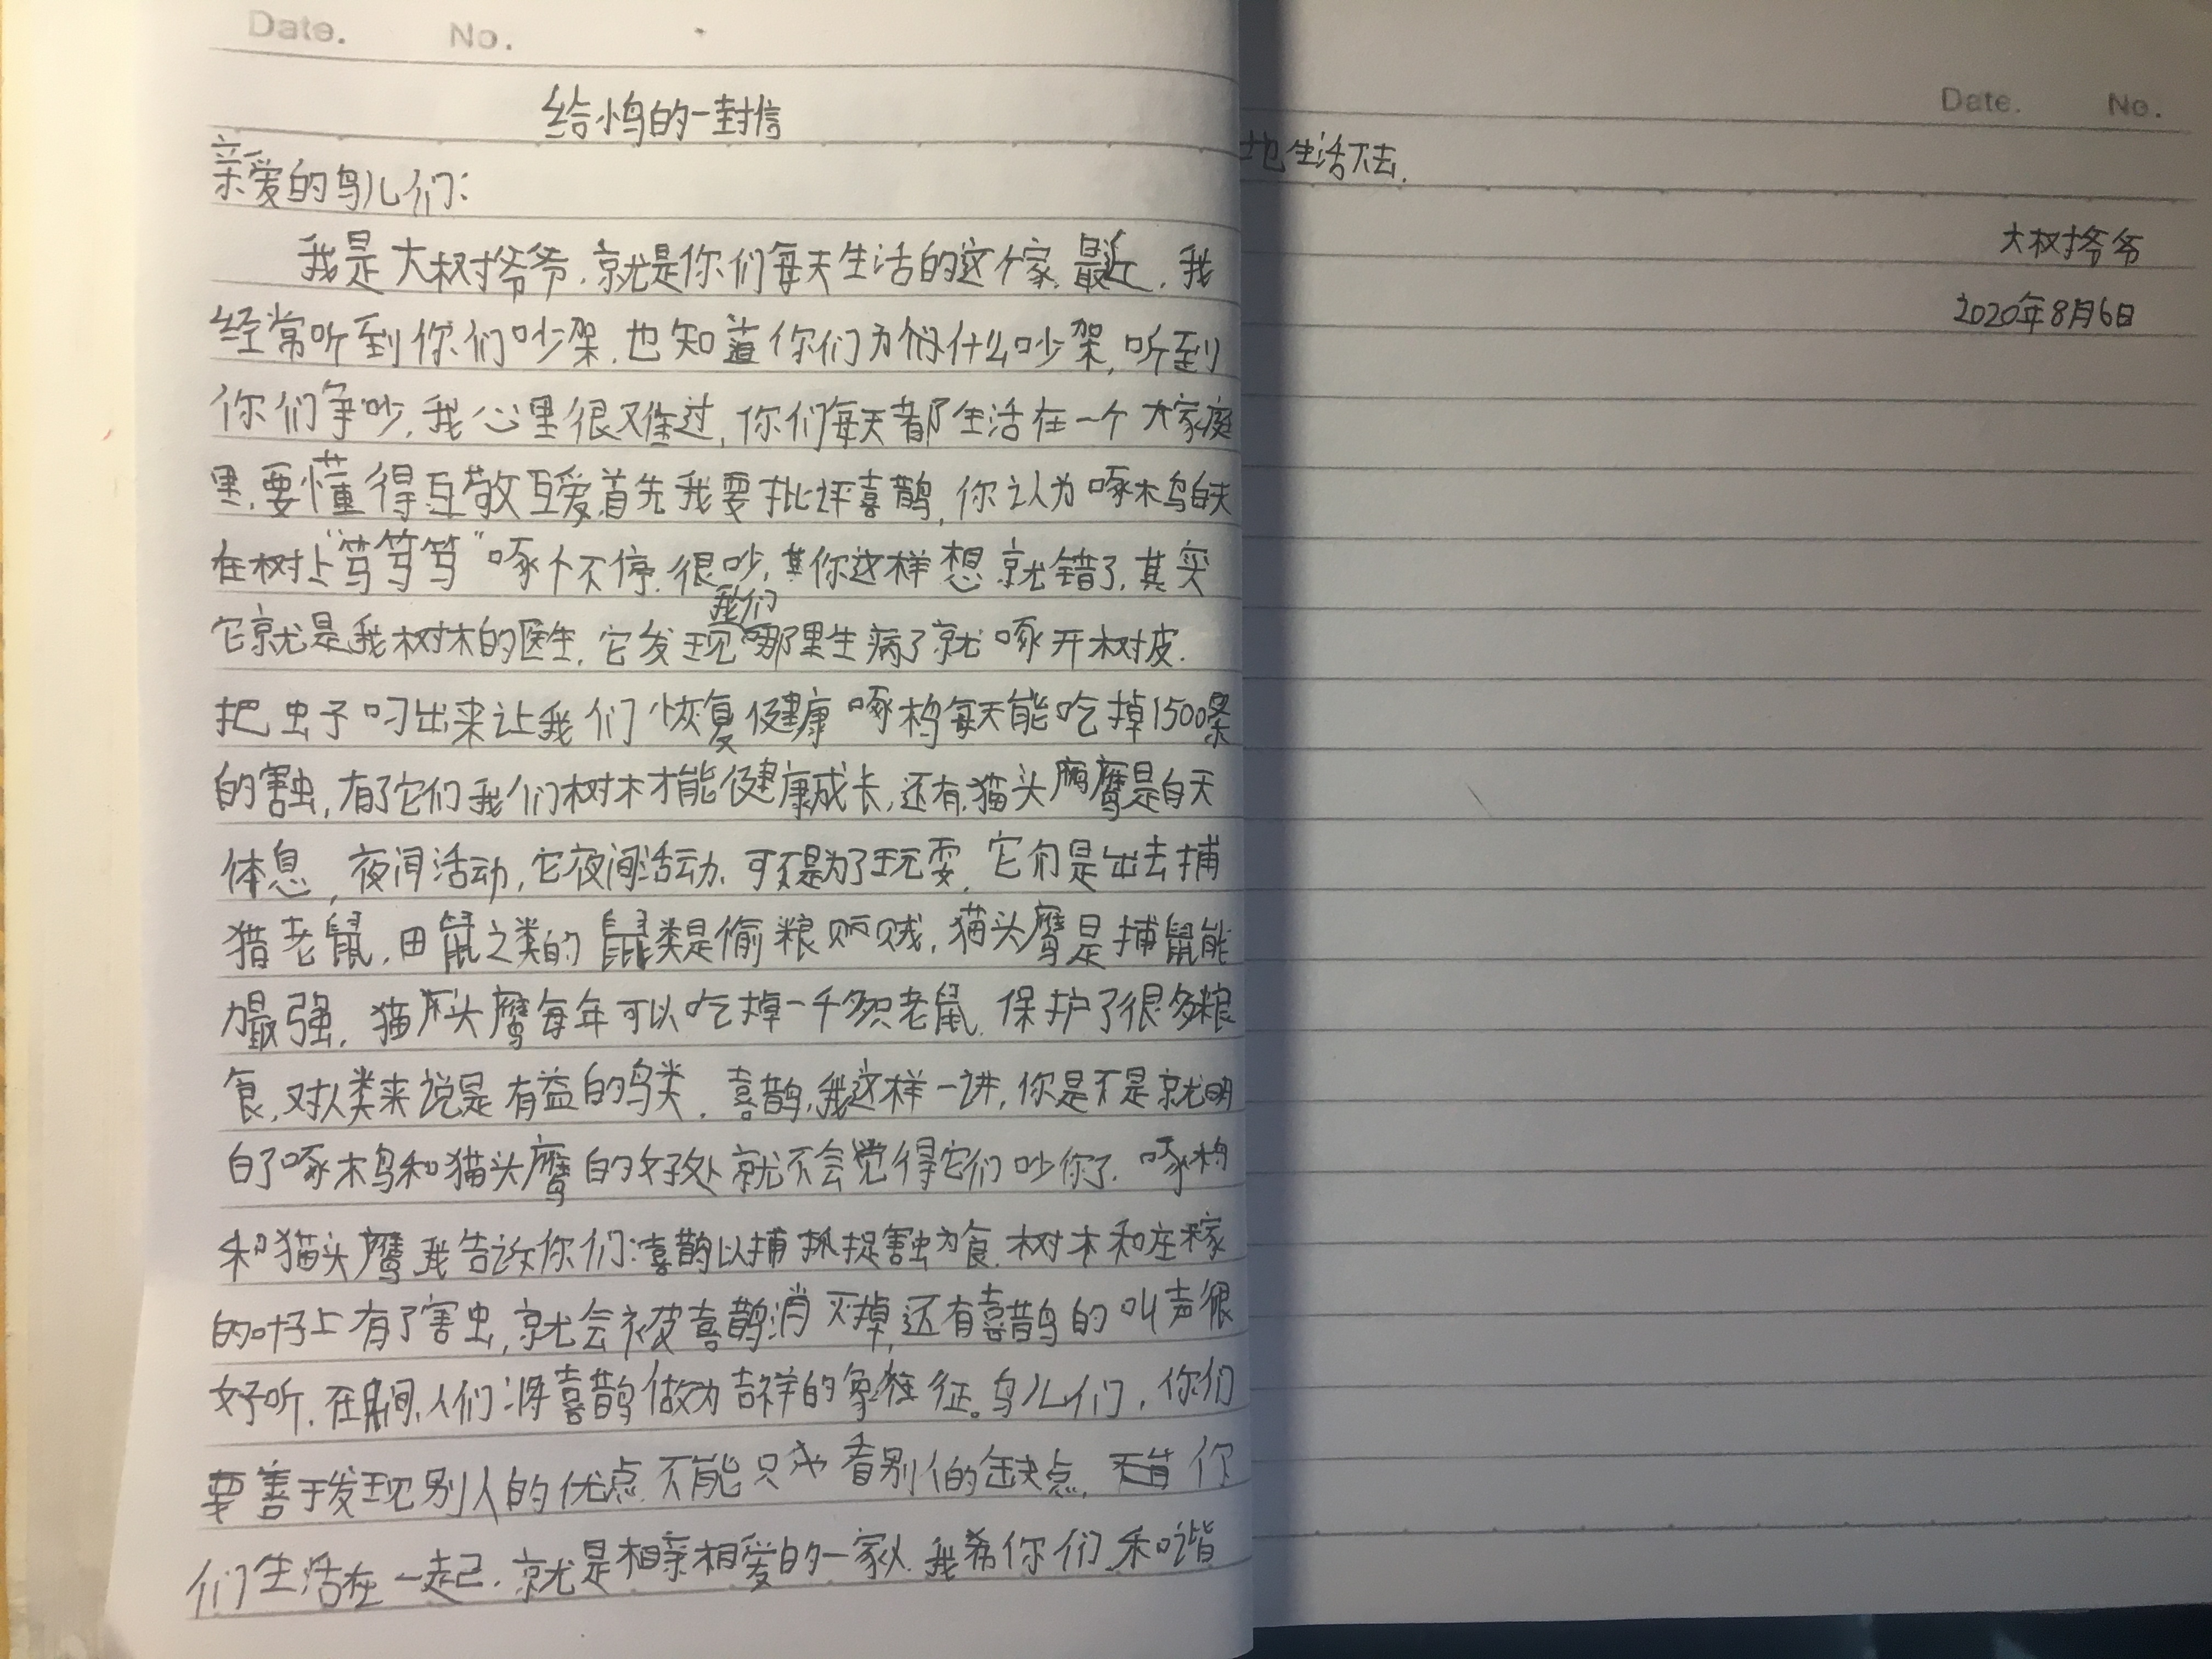 Date. No.
给小鸟的一封信
亲爱的鸟儿们：
我是大树爷爷，就是你们每天生活的这个家，最近，我
经常听到你们吵架，也知道你们为什么吵架，听到
你们争吵，我心里很难过，你们每天都生活在一个大家庭
里，要懂得互敬互爱，首先我要批评喜鹊，你认为啄木鸟白天
在树上“笃笃笃”啄个不停，很吵，你这样想就错了，其实
它就是我树木的医生，它发现我们哪里生病了就啄开树皮，
把虫子叼出来让我们恢复健康，啄木鸟每天能吃掉1500条
的害虫，有了它们我们树木才能健康成长，还有，猫头鹰是白天
体息，夜间活动，它夜间活动，可不是为了玩耍，它们是出去捕
猎老鼠，田鼠之类的鼠类是偷粮贼，猫头鹰是捕鼠能
力最强，猫头鹰每年可以吃掉一千多只老鼠，保护了很多粮
食，对人类来说是有益的鸟类，喜鹊，我这样一讲，你是不是就明
白了啄木鸟和猫头鹰的好处，就不会觉得它们吵你了，啄木鸟
和猫头鹰我告诉你们：喜鹊以捕捉害虫为食，树木和庄稼
的叶子上有了害虫，就会被喜鹊消灭掉，还有喜鹊的叫声很
好听，在民间，人们将喜鹊做为吉祥的象征。鸟儿们，你们
要善于发现别人的优点，不能只看别人的缺点，你
们生活在一起，就是相亲相爱的一家人，我希你们，和谐
Date. No.
地生活下去，
大树爷爷
2020年8月6日